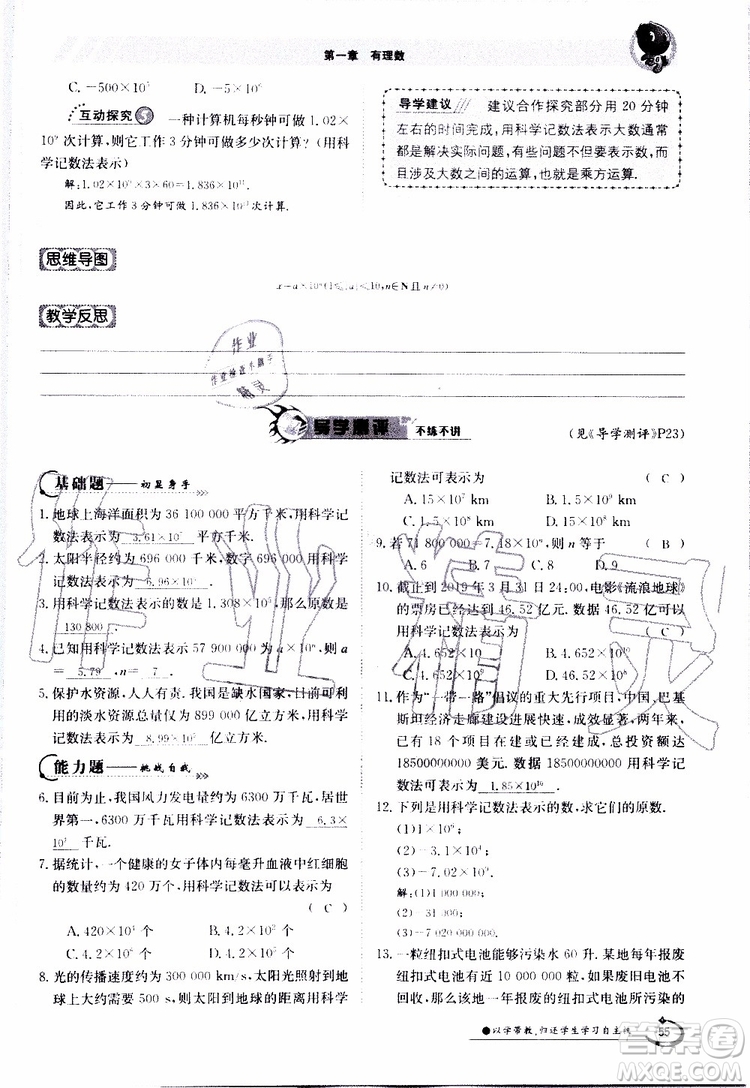 第一章 有理数
C. -500×10⁵ D. -5×10⁵
互动探究5 一种计算机每秒钟可做 1.02×
10⁹ 次计算，则它工作 3 分钟可做多少次计算？(用科
学记数法表示)
解：1.02×10⁹×3×60=1.836×10¹¹.
因此，它工作 3 分钟可做 1.836×10¹¹次计算.
导学建议 建议合作探究部分用 20 分钟
左右的时间完成，用科学记数法表示大数通常
都是解决实际问题，有些不是只表示数，而
且涉及大数的运算，也就是乘方运算.
思维导图
教学反思
导学测评 不练不讲
(见《导学测评》P23)
基础题——初显身手
1. 地球上海洋面积为 36 100 000 平方千米，用科学记
数法表示为 3.61×10⁷ 平方千米.
2. 太阳半径约为 696 000 千米，数字 696 000 用科学记
数法表示为 6.96×10⁵ .
3. 用科学记数法表示的数是 1.308×10⁵，那么原数是
130 800 .
4. 已知用科学记数法表示 57 900 000 为 a×10ⁿ，则
a= 5.79 ，n= 7 .
5. 保护水资源，人人有责. 我国是缺水国家，目前可利
用淡水资源总量仅为 899 000 亿立方米，用科学记
数法表示为 8.99×10⁵ 亿立方米.
能力题——挑战自我
6. 目前为止，我国风力发电量约为 6300 万千瓦，居世
界第一，6300 万千瓦用科学记数法表示为 6.3×
10⁷ 千瓦.
7. 据统计，一个健康的女子体内每毫升血液中红细胞
的数量约为 420 万个，用科学记数法可以表示为
( C )
A. 420×10⁴ 个 B. 4.2×10² 个
C. 4.2×10⁶ 个 D. 42×10⁵ 个
8. 光的传播速度约为 300 000 km/s，太阳光照射到地
球上大约需要 500 s，则太阳到地球的距离用科学
记数法可表示为 ( C )
A. 15×10⁷ km B. 15×10⁸ km
C. 1.5×10⁸ km D. 1.5×10⁷ km
9. 若 71 800 000=7.18×10ⁿ，则 n 等于 ( B )
A. 6 B. 7 C. 8 D. 9
10. 截止到 2019 年 3 月 31 日 24:00，电影《流浪地球》
的票房已经达到约 46.52 亿元. 数据 46.52 亿可以
用科学记数法表示为 ( C )
11. 作为“一带一路”倡议的重大先行项目，中国、巴基
斯坦经济走廊建设进展快速，成效显著，两年来，
已有 18 个项目在建或已建成，总投资额达
18500000000 美元. 数据 18500000000 用科学
记数法可表示为 1.85×10¹⁰ .
12. 下列是用科学记数法表示的数，求它们的原数.
(1)1×10⁶；
(2)-3.1×10⁴；
(3)-7.02×10⁹.
解：(1)1 000 000；
(2)-31 000；
(3)-7 020 000 000.
13. 一粒纽扣式电池能够污染水 60 升. 某地每年报废
的纽扣式电池有 10 000 000 粒. 如果废旧电池不
回收，那么该地一年报废的纽扣式电池所污染的
●以学带教，归还学生学习自主权
55
作业精灵
MXQE.COM